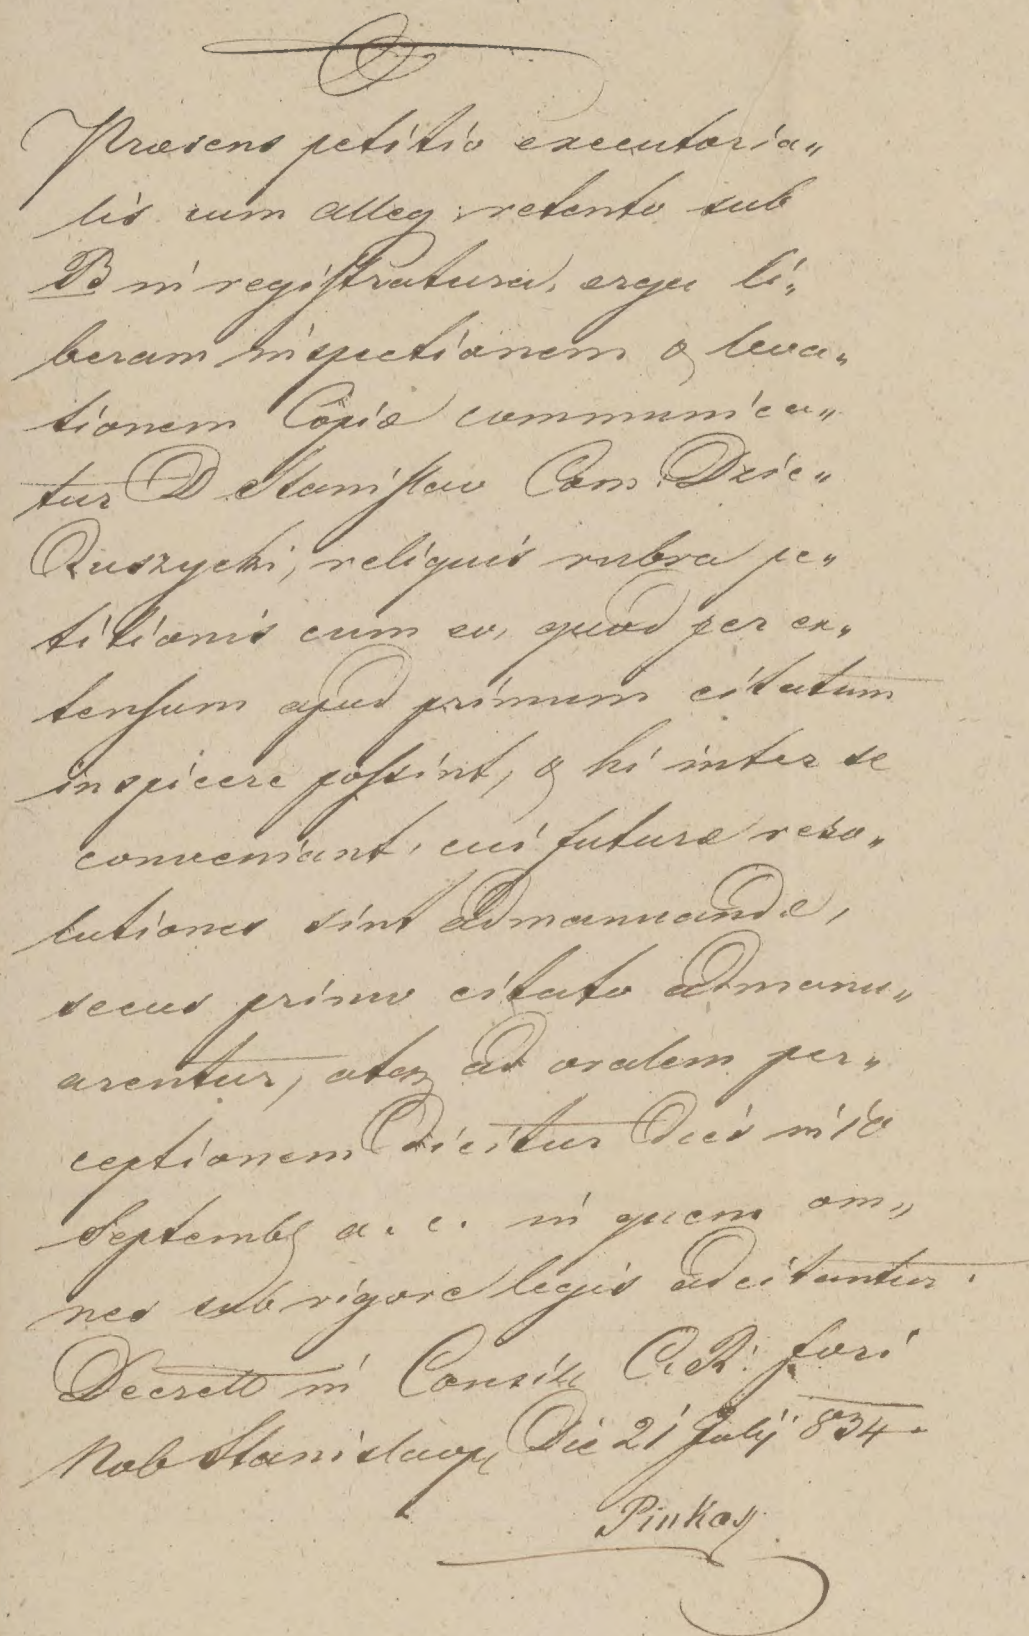 Præsens petitio executoria„
lis cum alleg: retento sub
B in registratura, erga li„
beram inspectionem & leva„
tionem Copiæ communica„
tur D Stanislao Com: Dzie„
duszycki, reliquis rubra pe„
titionis cum eo, quod per ex„
tensum apud primum citatum
inspicere possint, & hi inter se
conveniant, cui futuræ reso„
lutiones sint admanuandæ,
secus primo citato admanu„
arentur, atq ad oralem per„
ceptionem dicitur dies in 10
Septemb a. c. in quem om„
nes sub rigore legis adcitantur.
Decrett in Consil C. R. fori
Nob Stanislaop Die 21 July 834.
Pinkas